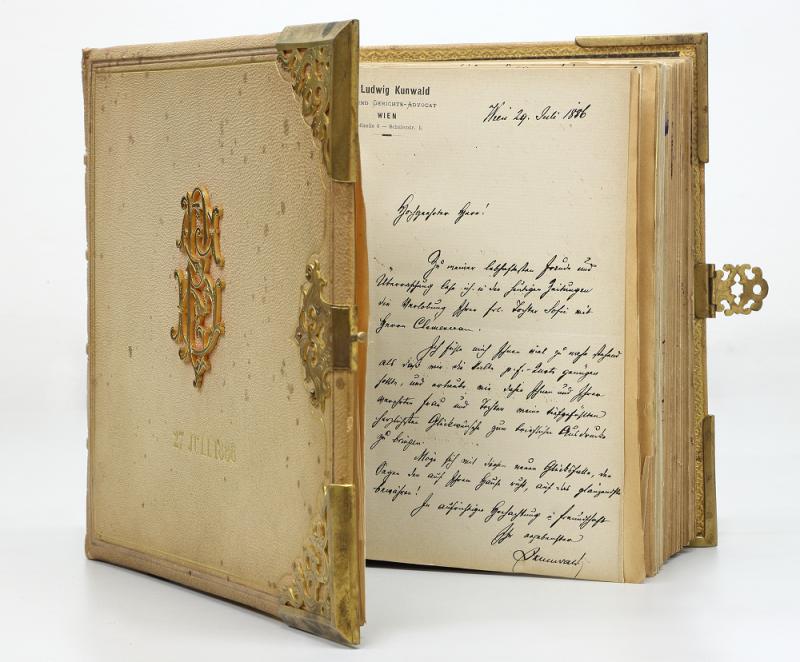 27 JULI 1886
Ludwig Kunwald
UND GERICHTS-ADVOCAT
WIEN
Schulerstr. 1.
Wien 29. Juli 1886
Hochgeehrter Herr!
Zu meiner lebhaftesten Freude und
Überraschung lese ich in den heutigen Zeitungen
die Verlobung Ihrer frl. Tochter Sofie mit
Herrn Clemenceau.
Ich fühle mich Ihnen viel zu nahe stehend
als daß mir die Karte p.f. genügen
sollte, und erlaube mir daher Ihnen und Ihrer
verehrten Frau und Tochter meine tiefgefühlten
herzlichsten Glückwünsche zum Ausdrucke
zu bringen.
Möge sich mit diesem neuen Glücksfalle, der
Segen der auf Ihrem Hause ruht, auf das glänzendste
bewähren!
In aufrichtiger Hochachtung u Freundschaft
Ihr ergebenster
Kunwald